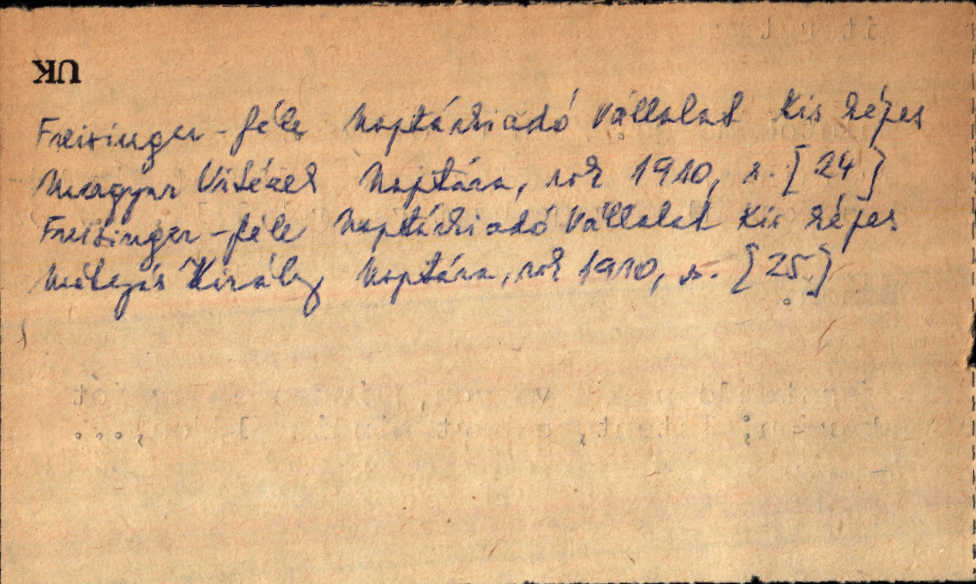 UK
Freisinger-féle Naptárkiadó Vállalat Kis képes
Magyar Vitézek Naptára, rok 1910, s. [24.]
Freisinger-féle Naptárkiadó Vállalat Kis képes
Mátyás Király Naptára, rok 1910, s. [25.]